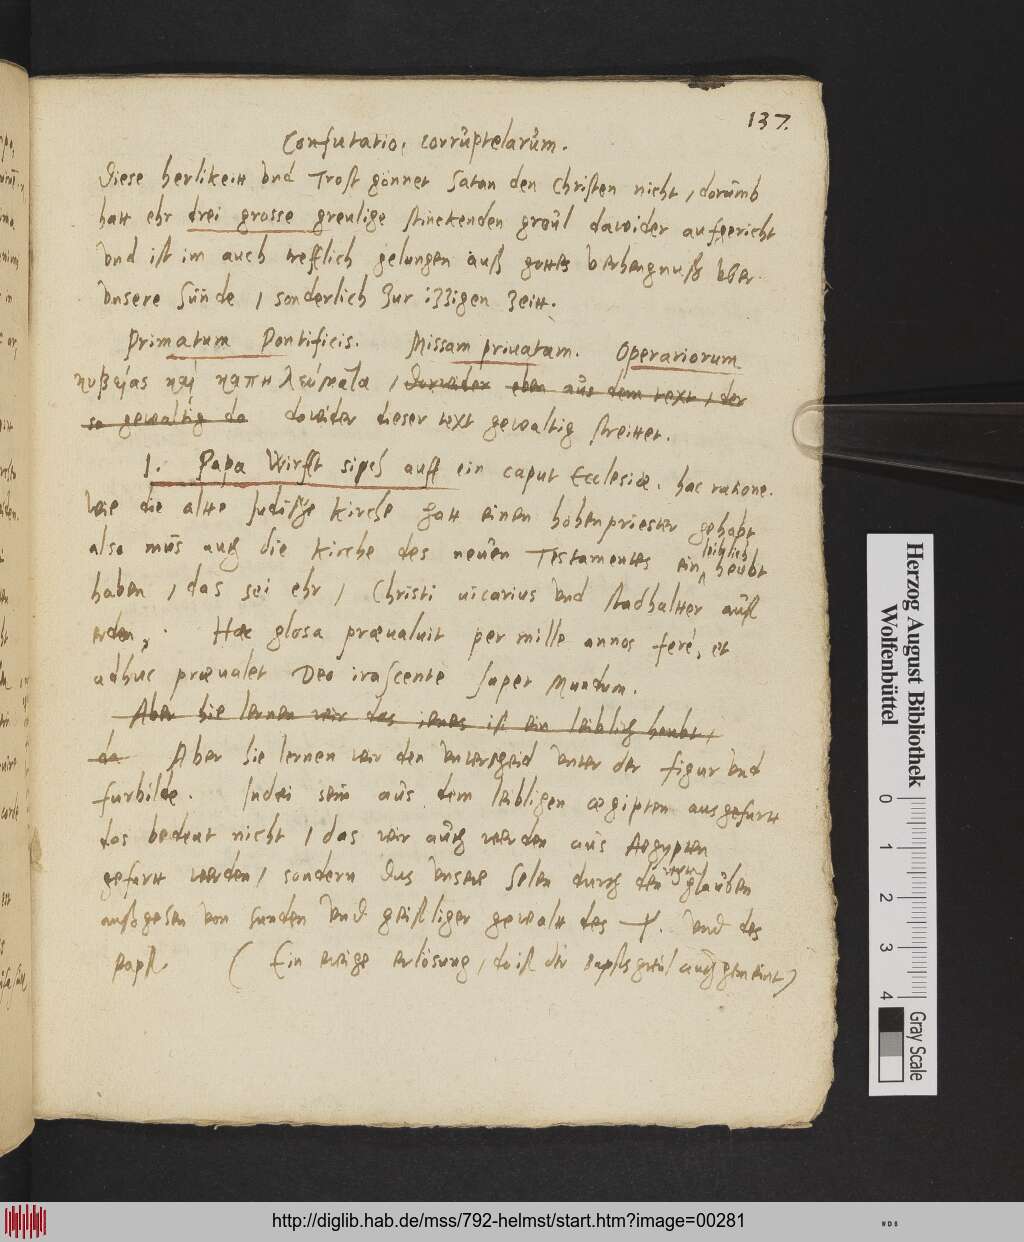 137.
Confutatio corruptelarum.
Diese herlikeitt vnd Trost gönnet Satan den Christen nicht, dorumb
hatt ehr drei grosse greulige stinckenden greul dawider aufgericht
vnd ist im auch trefflich gelungen auß gottes verhengnuß vber
vnsere Sünde, sonderlich zur izzigen zeitt.
Primatum Pontificis. Missam priuatam. Operariorum
κυβείας και καπηλεύματα, dorwider eben aus dem text, der
so gewaltig do dowider dieser text gewaltig streittet.
1. Papa Wirfft sich auff ein caput Ecclesiæ. hac ratione.
Wie die alte Judische Kirche hatt einen hohenpriester gehabt
also mus auch die Kirche des neuen Testamentes ein leiblich heubt
haben, das sei ehr, Christi uicarius vnd stadhaltter auff
erden. Hæc glosa præualuit per mille annos feré, et
adhuc præualet Deo irascente super Mundum.
Aber hie lernen wir das ienes ist ein leiblich heubt,
da Aber hie lernen wir den vnterscheid vnter der figur vnd
furbilde. Juden sein aus dem leibligen ægipten ausgefurtt
das bedeut nicht, das wir auch werden aus Aegypten
gefurtt werden, sondern das vnsere Selen durch den glauben
außgehen von sunden vnd geistliger gewalt des vnd des
Papst (Ein ewige erlösung, do ist der papstsgreul auch gemeint)
Herzog August Bibliothek
Wolfenbüttel
0 1 2 3 4
Gray Scale
http://diglib.hab.de/mss/792-helmst/start.htm?image=00281